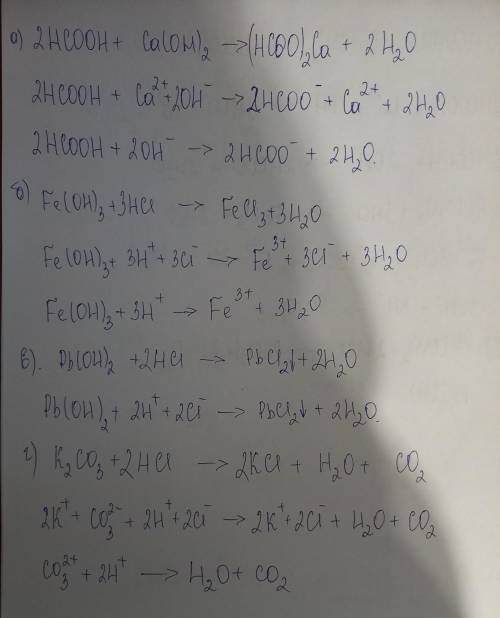 а) 2HCOOH + Ca(OH)₂ → (HCOO)₂Ca + 2H₂O
2HCOOH + Ca²⁺ + 2OH⁻ → 2HCOO⁻ + Ca²⁺ + 2H₂O
2HCOOH + 2OH⁻ → 2HCOO⁻ + 2H₂O.
б) Fe(OH)₃ + 3HCl → FeCl₃ + 3H₂O
Fe(OH)₃ + 3H⁺ + 3Cl⁻ → Fe³⁺ + 3Cl⁻ + 3H₂O
Fe(OH)₃ + 3H⁺ → Fe³⁺ + 3H₂O
в). Pb(OH)₂ + 2HCl → PbCl₂↓ + 2H₂O
Pb(OH)₂ + 2H⁺ + 2Cl⁻ → PbCl₂↓ + 2H₂O.
г) K₂CO₃ + 2HCl → 2KCl + H₂O + CO₂
2K⁺ + CO₃²⁻ + 2H⁺ + 2Cl⁻ → 2K⁺ + 2Cl⁻ + H₂O + CO₂
CO₃²⁺ + 2H⁺ → H₂O + CO₂